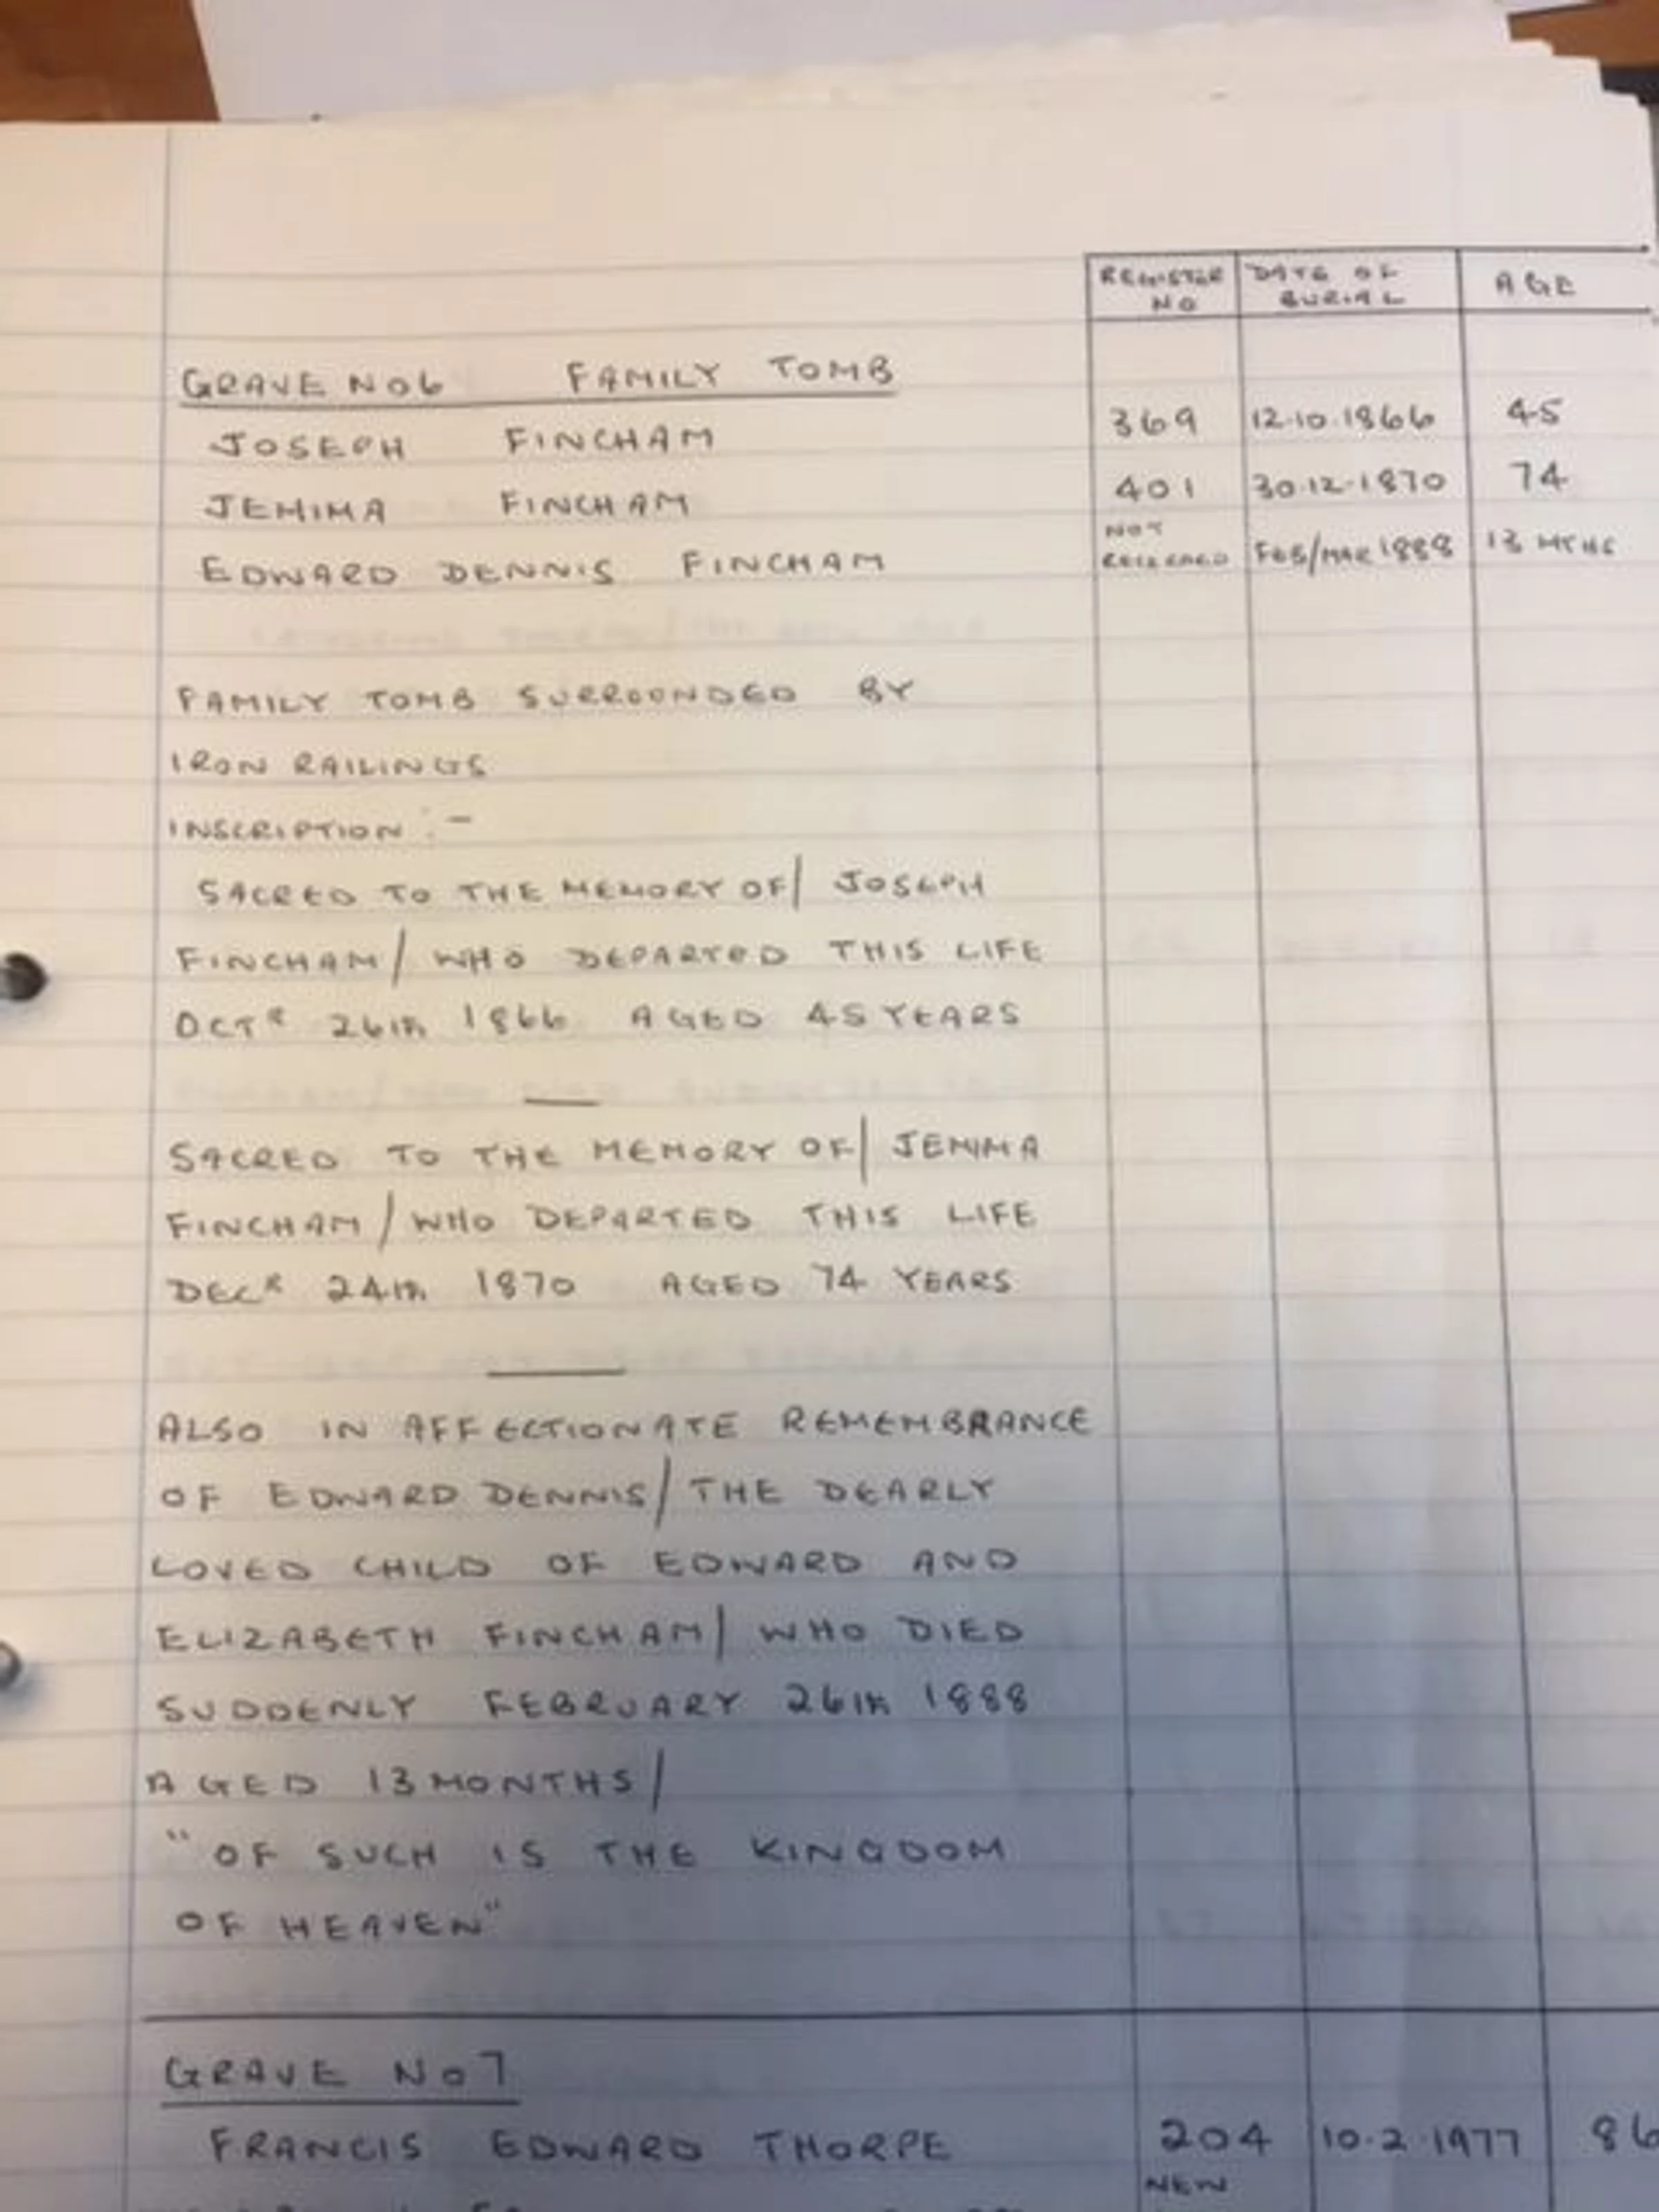 REGISTER NO DATE OF BURIAL AGE
GRAVE NO 6 FAMILY TOMB
JOSEPH FINCHAM 369 12.10.1866 45
JEMIMA FINCHAM 401 30.12.1870 74
EDWARD DENNIS FINCHAM NOT RECORDED FEB/MAR 1888 13 MTHS
FAMILY TOMB SURROUNDED BY
IRON RAILINGS
INSCRIPTION :-
SACRED TO THE MEMORY OF/ JOSEPH
FINCHAM/ WHO DEPARTED THIS LIFE
OCTR 26TH 1866 AGED 45 YEARS
SACRED TO THE MEMORY OF/ JEMIMA
FINCHAM/ WHO DEPARTED THIS LIFE
DECR 24TH 1870 AGED 74 YEARS
ALSO IN AFFECTIONATE REMEMBRANCE
OF EDWARD DENNIS/ THE DEARLY
LOVED CHILD OF EDWARD AND
ELIZABETH FINCHAM/ WHO DIED
SUDDENLY FEBRUARY 26TH 1888
AGED 13 MONTHS/
"OF SUCH IS THE KINGDOM
OF HEAVEN"
GRAVE NO 7
FRANCIS EDWARD THORPE 204 10.2.1977 86
NEW